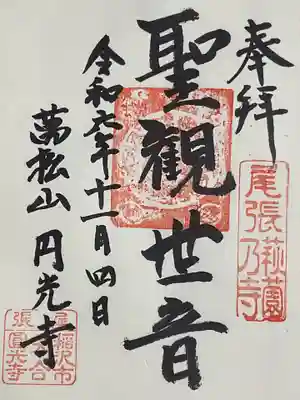 奉拝
尾張
萩薗
乃寺
聖観世音
令和六年十一月四日
萬松山 円光寺
尾張
稲沢市
圓光寺